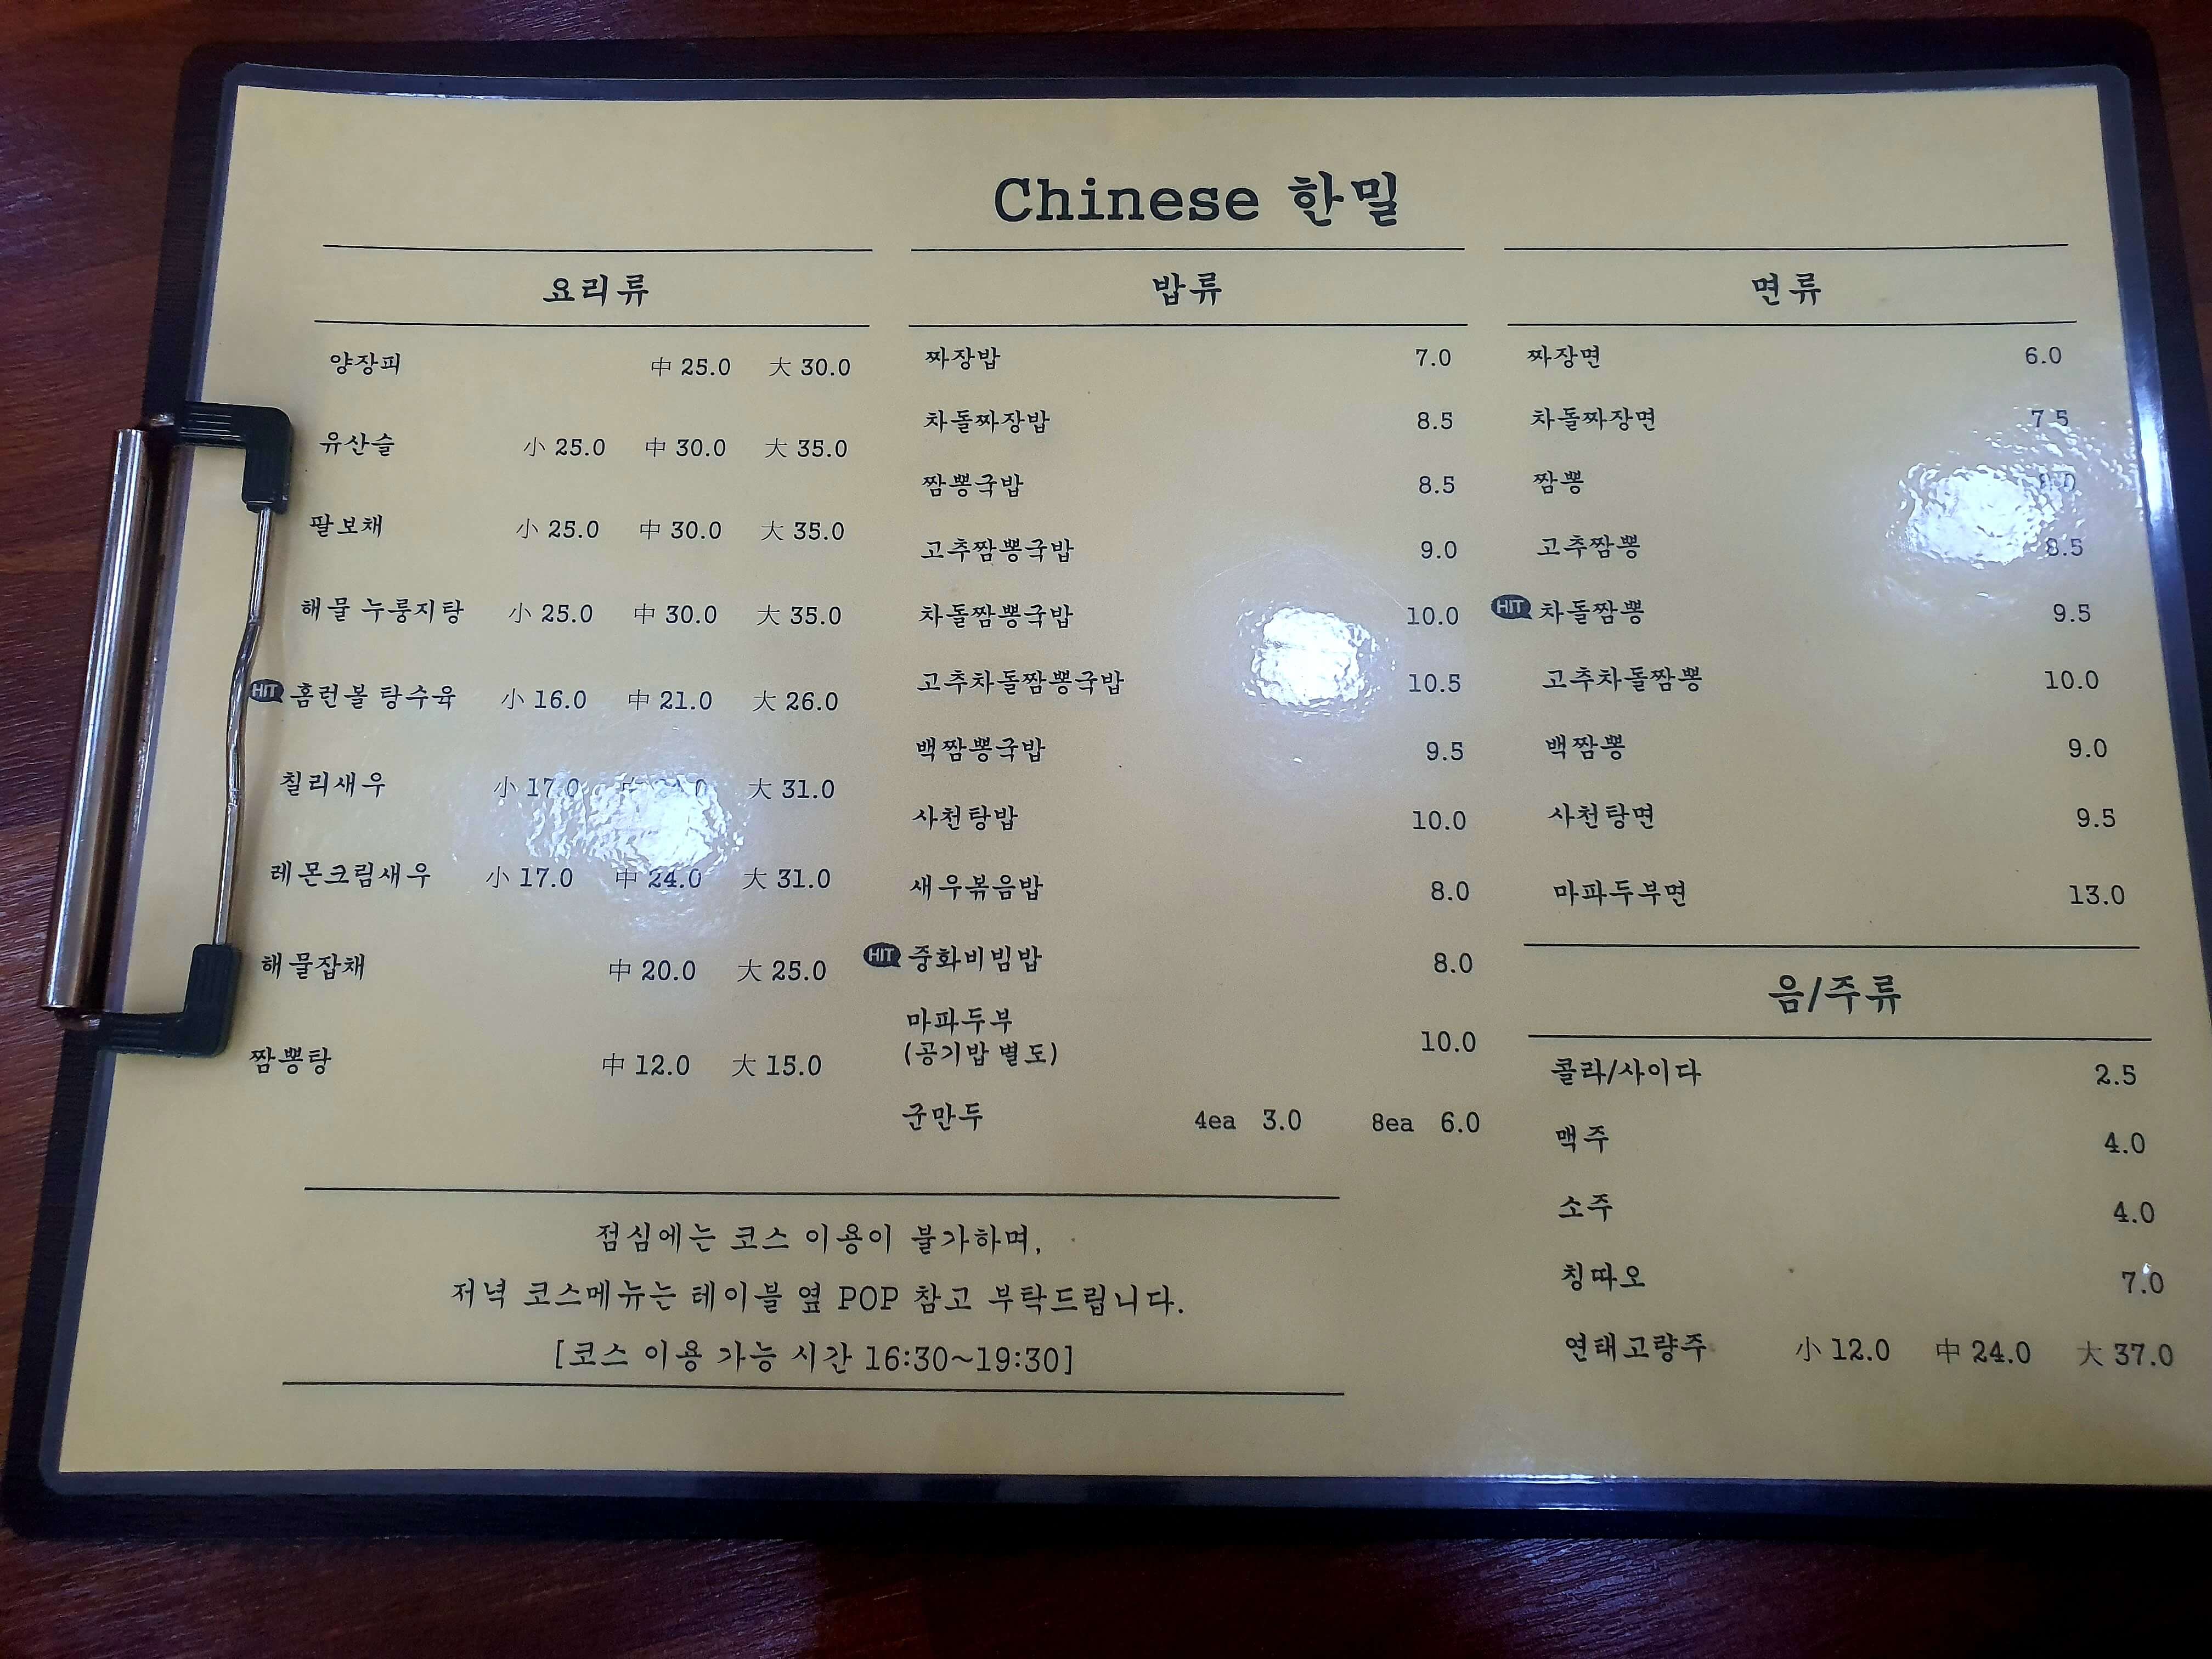 Chinese 한밀
요리류
양장피 中 25.0 大 30.0
유산슬 小 25.0 中 30.0 大 35.0
팔보채 小 25.0 中 30.0 大 35.0
해물 누룽지탕 小 25.0 中 30.0 大 35.0
HIT 홈런볼 탕수육 小 16.0 中 21.0 大 26.0
칠리새우 小 17.0 中 大 31.0
레몬크림새우 小 17.0 中 24.0 大 31.0
해물잡채 中 20.0 大 25.0
짬뽕탕 中 12.0 大 15.0
밥류
짜장밥 7.0
차돌짜장밥 8.5
짬뽕국밥 8.5
고추짬뽕국밥 9.0
차돌짬뽕국밥 10.0
고추차돌짬뽕국밥 10.5
백짬뽕국밥 9.5
사천탕밥 10.0
새우볶음밥 8.0
HIT 중화비빔밥 8.0
마파두부
(공기밥 별도) 10.0
군만두 4ea 3.0 8ea 6.0
면류
짜장면 6.0
차돌짜장면 7.5
짬뽕
고추짬뽕 8.5
HIT 차돌짬뽕 9.5
고추차돌짬뽕 10.0
백짬뽕 9.0
사천탕면 9.5
마파두부면 13.0
음/주류
콜라/사이다 2.5
맥주 4.0
소주 4.0
칭따오 7.0
연태고량주 小 12.0 中 24.0 大 37.0
점심에는 코스 이용이 불가하며,
저녁 코스메뉴는 테이블 옆 POP 참고 부탁드립니다.
[코스 이용 가능 시간 16:30~19:30]